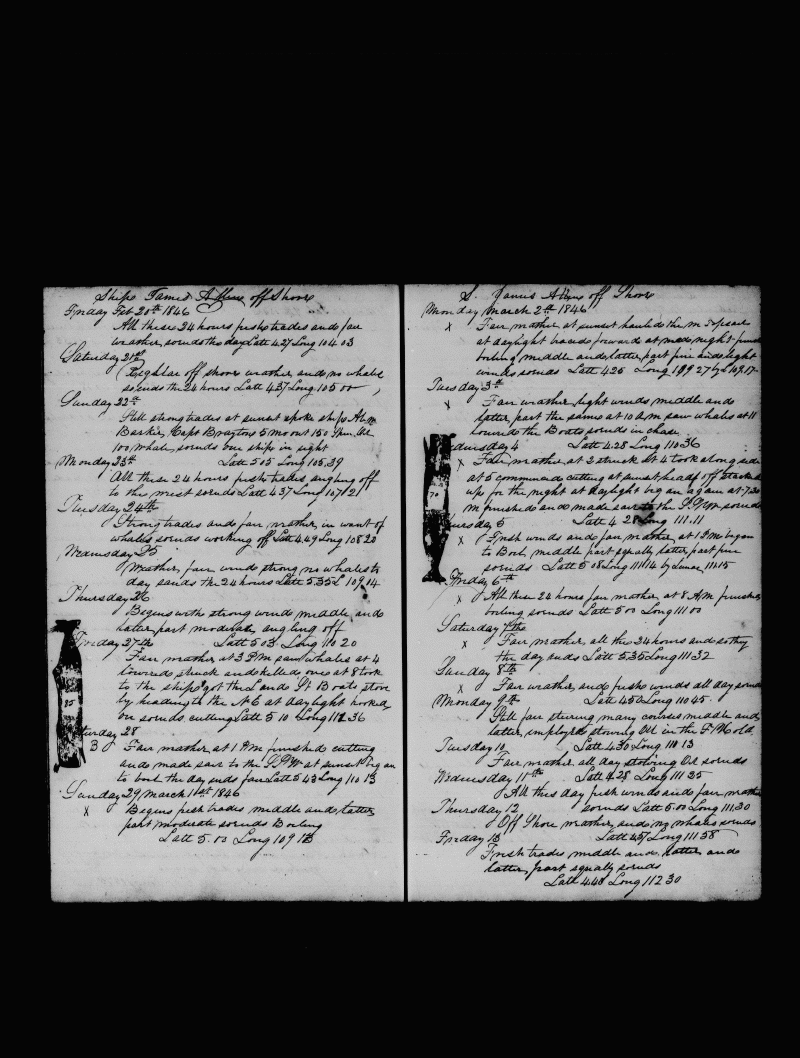 Ships James Allen off Shore
Friday Feb 20th 1846
All these 24 hours fresh trades and fair
weather so ends the day Latt 4.27 Long 104 03
Saturday 21st
Regular off shore weather and no whales
so ends the 24 hours Latt 4.37 Long 105 00
Sunday 22nd
Still strong trades at sunset spoke ship
Barkir Capt Brayton 5 m out 150 Spm Oil
100 whale so ends one ship in sight
Monday 23rd Latt 5 05 Long 105.39
All these 24 hours fresh trades angling off
to the west so ends Latt 4 37 Long 107 21
Tuesday 24th
Strong trades and fair weather in want of
whales so ends working off Latt 4.49 Long 108 20
Wednesday 25
Weather fair wind strong no whales to
day so ends the 24 hours Latt 5.35 L 109 14
Thursday 26
Begins with strong wind middle and
later part moderate angling off
Friday 27th Latt 5 03 Long 110 20
Fair weather at 3 PM saw whales at 4
lowered struck and killed one at 8 took
to the ship got the L and St Boats stove
by heading to the NE at daylight hooked
on so ends cutting Latt 5 10 Long 111 36
85
Saturday 28
B Fair weather at 1 PM finished cutting
and made sail to the at sunset began
to boil the day ends fair Latt 5 43 Long 110 13
Sunday 29 March 1st 1846
X Begins fresh trades middle and latter
part moderate so ends Boiling
Latt 5.00 Long 109 13
S. James Allen off Shore
Monday March 2nd 1846
X Fair weather at sunset hauled the m Topsail
at daylight braced forwards at mid night finish
boiling middle and latter part fine and light
winds so ends Latt 4.26 Long 109 27 by L 109.17
Tuesday 3rd
X Fair weather light winds middle and
latter part the same at 10 AM saw whales at 11
lowered the Boats so ends in chase
Wednesday 4 Latt 4.28 Long 110 36
X Fair weather at 3 struck at 4 took along side
at 5 commenced cutting at sunset head off
up for the night at daylight began again at 7.30
70
m finished and made sail to the so ends
Thursday 5 Latt 4 28 Long 111.11
X Fresh winds and fair weather at 1 PM began
to Boil middle part squally latter part fine
so ends Latt 5 08 Long 111 14 by Lunar 111 15
Friday 6th
X All these 24 hours fair weather at 8 AM finished
boiling so ends Latt 5 00 Long 111 00
Saturday 7th
X Fair weather all the 24 hours and so
the day ends Latt 5.35 Long 111 32
Sunday 8th
X Fair weather and fresh winds all day so ends
Monday 9th Latt 4.50 Long 110 45
Still fair steering many courses middle and
latter employed stowing Oil in the F Hold
Tuesday 10 Latt 4.30 Long 110 13
Fair weather all day stowing Oil so ends
Wednesday 11th Latt 4.28 Long 111 25
All this day fresh winds and fair weather
Thursday 12 so ends Latt 5.00 Long 111.30
Off Shore weather and no whales so ends
Friday 13 Latt 4.57 Long 111 58
Fresh trades middle and latter and
latter part squally so ends
Latt 4.40 Long 112 30